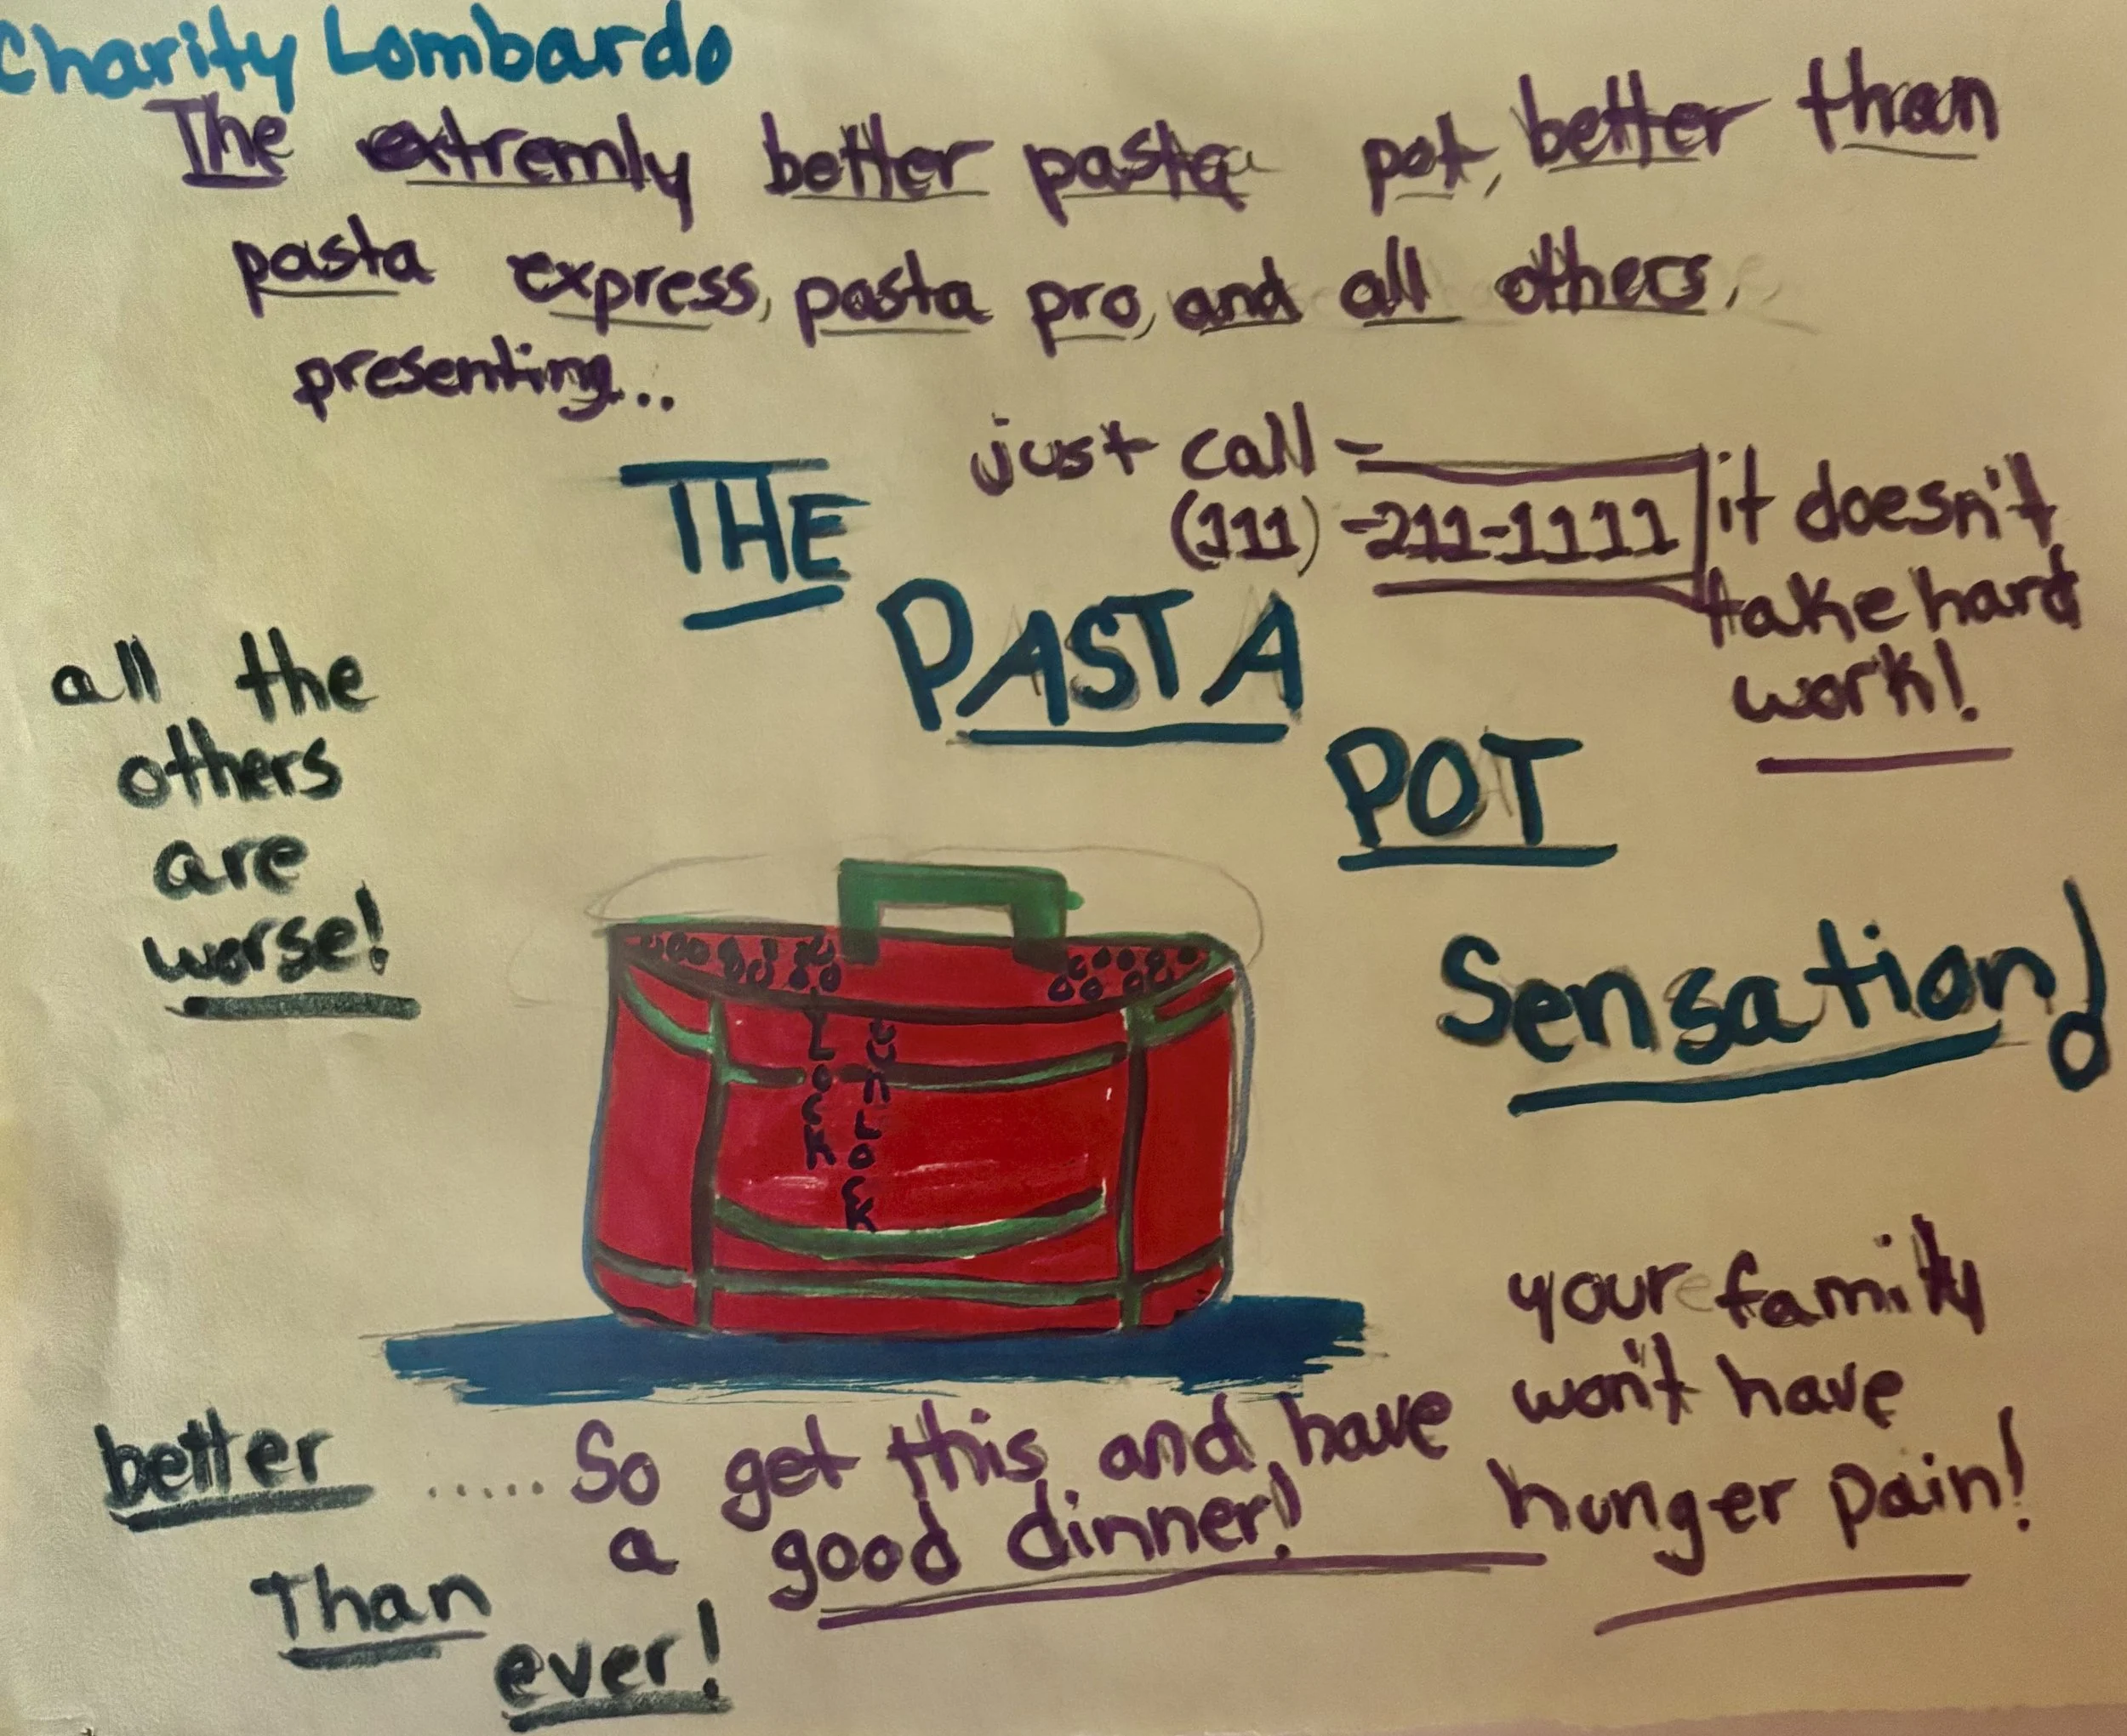 Charity Lombardo
The extremly better pasta pot, better than
pasta express, pasta pro, and all others,
presenting...
just call -
(111) -211-1111
it doesn't
take hard
work!
THE
PASTA
POT
Sensation!
all the
others
are
worse!
LOCK
UNLOCK
your family
won't have
hunger pain!
better
Than
ever!
..... So get this and have
a good dinner!